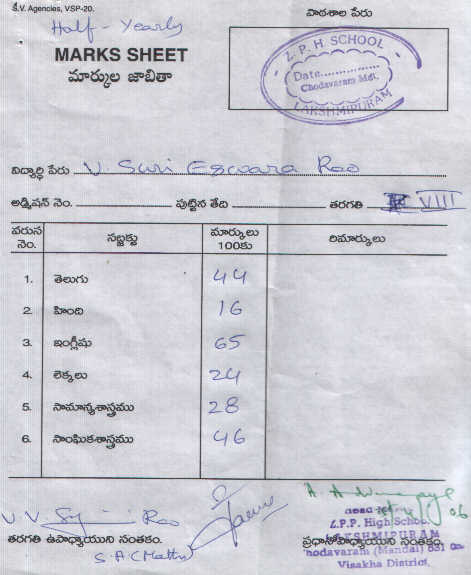 కే.V. Agencies, VSP-20.
పాఠశాల పేరు
Half-Yearly
MARKS SHEET
మార్కుల జాబితా
Z.P.H SCHOOL
Date...............
Chodavaram Mdl.
LAKSHMIPURAM
విద్యార్థి పేరు V. Suri Eswara Rao
అడ్మిషన్ నెం. పుట్టిన తేది తరగతి VIII
వరుస నెం. సబ్జక్టు మార్కులు 100కు రిమార్కులు
1. తెలుగు 44
2. హింది 16
3. ఇంగ్లీషు 65
4. లెక్కలు 24
5. సామాన్యశాస్త్రము 28
6. సాంఘికశాస్త్రము 46
Rao
తరగతి ఉపాధ్యాయుని సంతకం.
S.A (Maths)
Z.P.P. High School
LAKSHMIPURAM
ప్రధానోపాధ్యాయుని సంతకం.
(Mandal) 531
Visakha District.